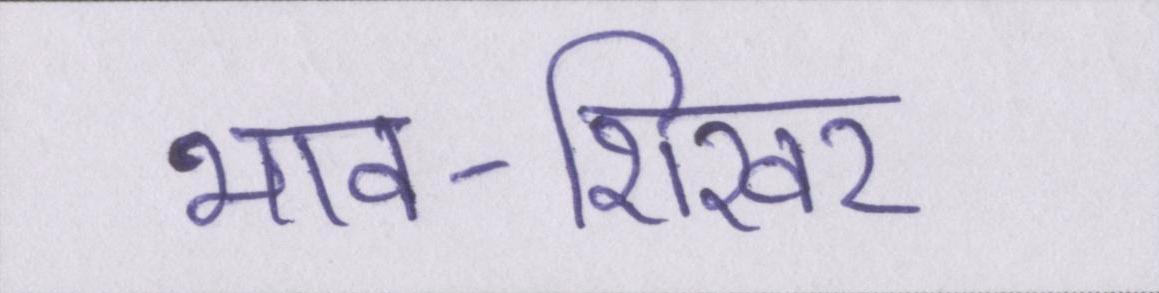 भाव-शिखर